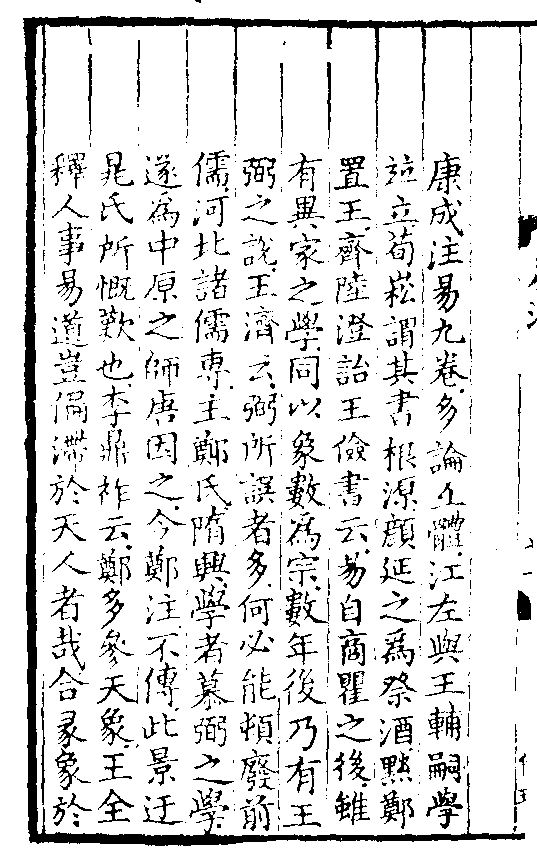 康成注易九卷多論互體江左與王輔嗣學
竝立荀崧謂其書根源顔延之爲祭酒黜鄭
置王齊陸澄詒王儉書云易自商瞿之後雖
有異家之學同以象數爲宗數年後乃有王
弼之說王濟云弼所誤者多何必能頓廢前
儒河北諸儒專主鄭氏隋興學者慕弼之學
遂爲中原之師唐因之今鄭注不傳此景迂
晁氏所慨歎也李鼎祚云鄭多參天象王全
釋人事易道豈偏滯於天人者哉合彖象於